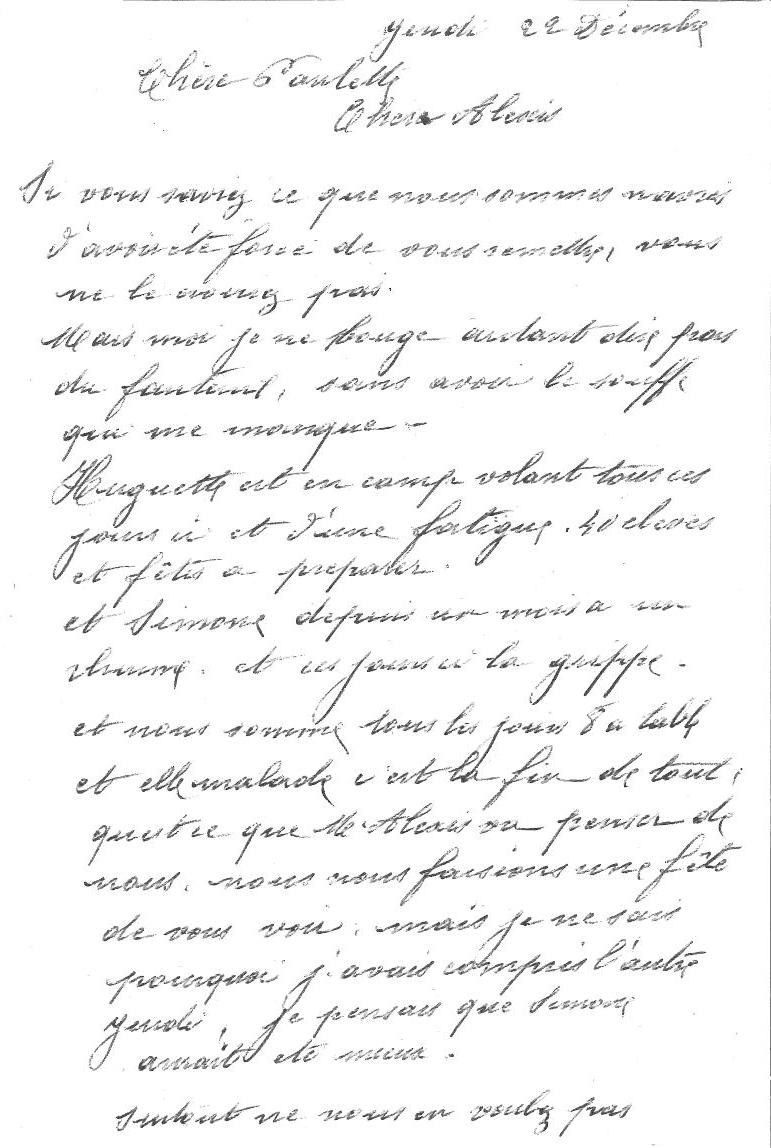 Jeudi 22 Décembre
Chère Paulette
Cher Alexis
Si vous saviez ce que nous sommes navrés
d'avoir été forcé de vous remettre, vous
ne le croirez pas.
Mais moi je ne bouge autant dire pas
du fauteuil, sans avoir le souffle
qui me manque -
Huguette est en camp volant tous ces
jours ci et d'une fatigue. 40 eleves
et fêtes a preparer.
et Simone depuis un mois a un
rhume. et ces jours ci la grippe -
et nous somme tous les jours 8 a table
et elle malade c'est la fin de tout,
qu'est ce que Mr Alexis va penser de
nous. nous nous faisions une fête
de vous voir. mais je ne sais
pourquoi j'avais compris l'autre
jeudi, je pensais que Simone
aurait ete mieux.
Surtout ne nous en voulez pas